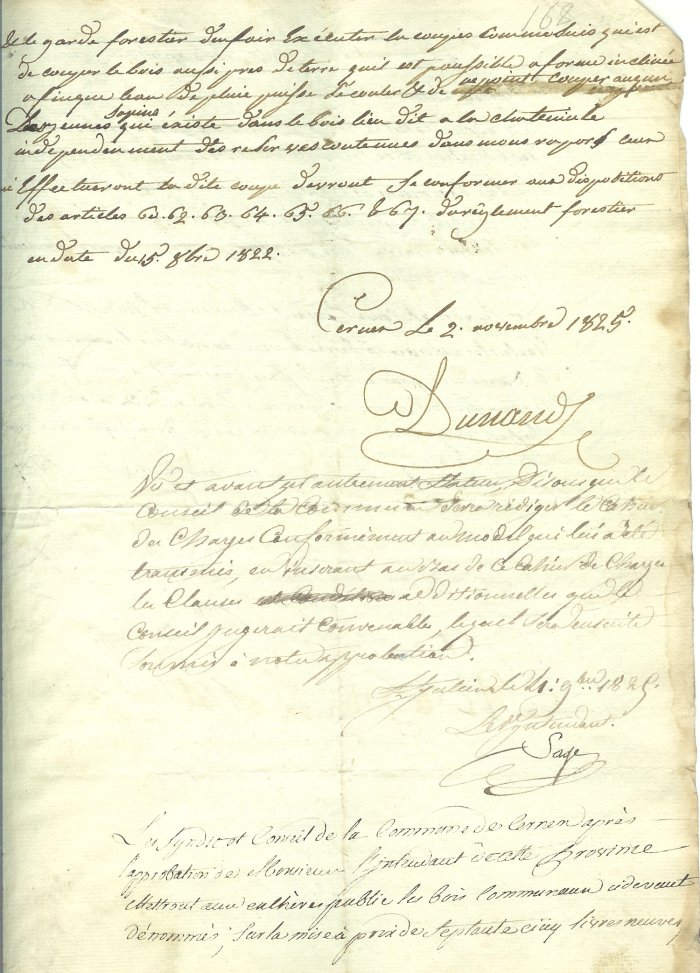 168
& le garde forestier d'enfair Exécuter la coupes Communbuis qui est
de couper le bois aussi pres de terre quil est poussible a forme inclinée
afinque leau de pluie puisse sécouler & de ne point couper aucun
Des jeunes Sapins qui éxiste dans le bois lieu dit a la chateniale
independenment des reserves contenues dans mons raport ceux
Effectueront la dite coupe devront se conformer aux dispositions
des articles 62. 63. 64. 65. 66. & 67. du rêglement forestier
en date du 15. 8bre 1822.
Cernex Le 2. novembre 1825.
Dunand
Vu et avant autrement Statuer, Disons que le
Conseil de la Commune devra rédiger le Cahier
des Charges Conformément au model qui lui a été
transmis, en inserant au bas de ce Cahier de Charges
les Clauses additionnelles que le
Conseil jugerait Convenables, lequel sera densuite
soumis à notre approbation.
St Julien le 21. 9bre 1825.
L'Intendant.
Sage
Les Syndic et Conseil de la Commune de Cernex après
lapprobation de Monsieur l'intendant de cette Province
Mettront aux enchères public les bois Communaux cidevant
dénommés, sur la mise à prix de Septante cinq livres neuves